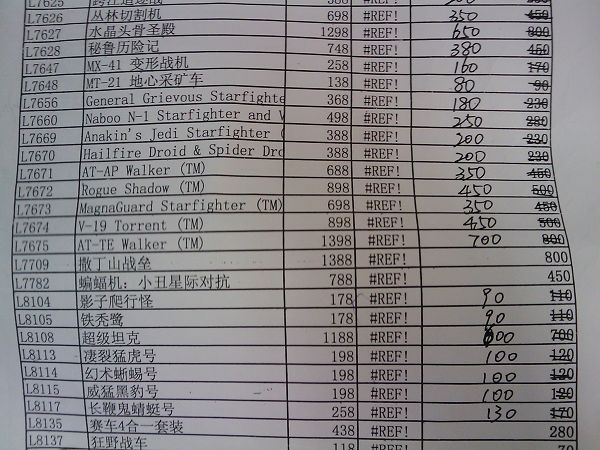 L7625 跨江追逐战
L7626 丛林切割机 698 #REF! 350 450
L7627 水晶头骨圣殿 1298 #REF! 650 800
L7628 秘鲁历险记 748 #REF! 380 450
L7647 MX-41 变形战机 258 #REF! 160 170
L7648 MT-21 地心采矿车 138 #REF! 80 90
L7656 General Grievous Starfighte 368 #REF! 180 230
L7660 Naboo N-1 Starfighter and V 498 #REF! 250 280
L7669 Anakin's Jedi Starfighter ( 388 #REF! 200 230
L7670 Hailfire Droid & Spider Dro 388 #REF! 200 230
L7671 AT-AP Walker (TM) 688 #REF! 350 450
L7672 Rogue Shadow (TM) 898 #REF! 450 500
L7673 MagnaGuard Starfighter (TM) 698 #REF! 350 450
L7674 V-19 Torrent (TM) 898 #REF! 450 500
L7675 AT-TE Walker (TM) 1398 #REF! 700 800
L7709 撒丁山战垒 1388 #REF! 800
L7782 蝙蝠机：小丑星际对抗 788 #REF! 450
L8104 影子爬行怪 178 #REF! 90 110
L8105 铁秃鹭 178 #REF! 90 110
L8108 超级坦克 1188 #REF! 600 700
L8113 凄裂猛虎号 198 #REF! 100 120
L8114 幻术蜥蜴号 198 #REF! 100 120
L8115 威猛黑豹号 198 #REF! 100 120
L8117 长鞭鬼蜻蜓号 258 #REF! 130 170
L8135 赛车4合一套装 438 #REF! 280
L8137 狂野战车 118 #REF! 70